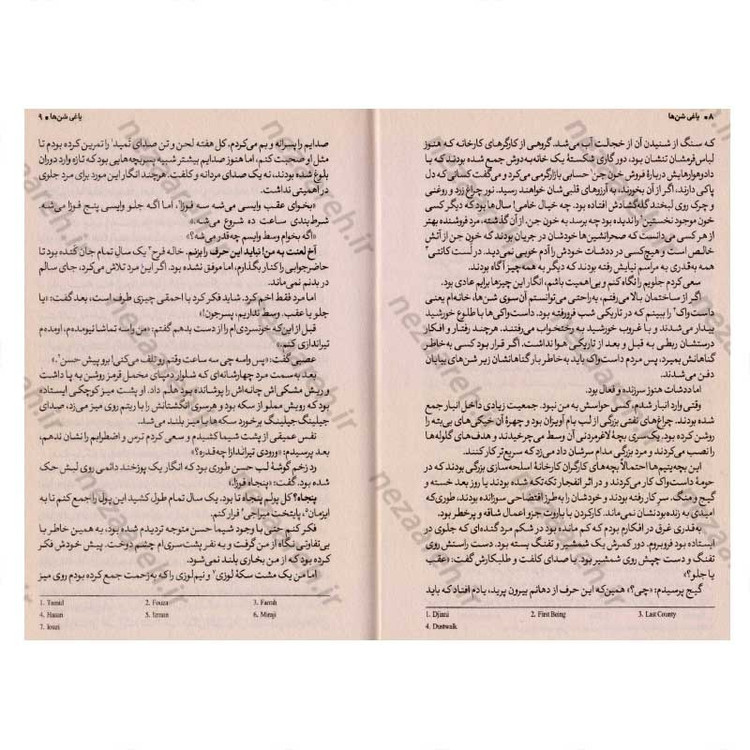 ۸ • یاغی شن‌ها
که سنگ از شنیدن آن از خجالت آب می‌شد. گروهی از کارگرهای کارخانه که هنوز
لباس فرمشان تنشان بود، دور گاری شکستهٔ یک خانه‌به‌دوش جمع شده بودند که با
دادوهوارهایش دربارهٔ فروش خون جن¹ حسابی بازارگرمی می‌کرد و می‌گفت کسانی که دل
پاکی دارند، اگر از آن بخورند، به آرزوهای قلبی‌شان خواهند رسید. نور چراغ زرد و روغنی
و چرک روی لبخند گله‌گشادش افتاده بود. چه خیال خامی! سال‌ها بود که دیگر کسی
خون موجود نخستین² را ندیده بود چه برسد به خون جن. از آن گذشته، مرد فروشنده بهتر
از هر کسی می‌دانست که صحرانشین‌ها خودشان در جریان بودند که خون جن از آتش
خالص است و هیچ‌کسی در ددشات خودش را آدم خوبی نمی‌دید. در لست کانتی³
همه به‌قدری به مراسم نیایش رفته بودند که دیگر به همه چیز آگاه بودند.
سعی کردم جلویم را نگاه کنم و بی‌اهمیت باشم، انگار این چیزها برایم عادی بود.
اگر از ساختمان بالا می‌رفتم، به‌راحتی می‌توانستم آن سوی شن‌ها، خانه‌ام یعنی
داست‌واک⁴ را ببینم که در تاریکی شب فرورفته بود. داست‌واکی‌ها با طلوع خورشید
بیدار می‌شدند و با غروب خورشید به رختخواب می‌رفتند. هرچند رفتار و افکار
درستشان ربطی به قبل و بعد از تاریکی هوا نداشت. اگر قرار بود کسی به‌خاطر
گناهانش بمیرد، پس مردم داست‌واک باید به‌خاطر بار گناهانشان زیر شن‌های بیابان
دفن می‌شدند.
اما ددشات هنوز سرزنده و فعال بود.
وقتی وارد انبار شدم، کسی حواسش به من نبود. جمعیت زیادی داخل انبار جمع
شده بودند. چراغ‌های نفتی بزرگی از لب بام آویزان بود و چهرهٔ آن خیکی‌های بی‌پته را
روشن کرده بود. یک‌سری بچهٔ لاغرمردنی آن وسط می‌چرخیدند و هدف‌های گلوله‌ها
را نصب می‌کردند و مرد بزرگی مدام سرشان داد می‌زد که سریع‌تر کار کنند.
این بچه‌یتیم‌ها احتمالاً بچه‌های کارگران کارخانهٔ اسلحه‌سازی بزرگی بودند که در
حومهٔ داست‌واک کار می‌کردند و در اثر انفجار تکه‌تکه شده بودند یا روز بعد خسته و
گیج و منگ، سر کار رفته بودند و خودشان را به‌طرز افتضاحی سوزانده بودند، طوری که
امیدی به زنده‌بودنشان نمی‌ماند. کارکردن با باروت جزو اعمال شاقه و پرخطر بود.
به‌قدری غرق در افکارم بودم که کم مانده بود در شکم مرد گنده‌ای که جلوی در
ایستاده بود فروبروم. دور کمرش یک شمشیر و تفنگ بسته بود. دست راستش روی
تفنگ و دست چپش روی شمشیر بود. با صدای کلفت و طلبکارش گفت: «عقب
یا جلو؟»
گیج پرسیدم: «چی؟» همین‌که این حرف از دهانم بیرون پرید، یادم افتاد که باید
1. Djinni 2. First Being 3. Last County
4. Dustwalk
یاغی شن‌ها • ۹
صدایم را پسرانه و بم می‌کردم. کل هفته لحن و تن صدای تُمید¹ را تمرین کرده بودم تا
مثل او صحبت کنم، اما هنوز صدایم بیشتر شبیه پسربچه‌هایی بود که تازه وارد دوران
بلوغ شده بودند، نه یک صدای مردانه و کلفت. هرچند انگار این مورد برای مرد جلوی
در اهمیتی نداشت.
«بخوای عقب وایسی می‌شه سه فوزا²، اما اگه جلو وایسی پنج فوزا می‌شه.
شرط‌بندی ساعت ده شروع می‌شه.»
«اگه بخوام وسط وایسم چه‌قدر می‌شه؟»
آخ لعنت به من! نباید این حرف را بزنم. خاله فرح³ یک سال تمام جان کنده بود تا
حاضرجوابی را کنار بگذارم، اما موفق نشده بود. اگر این مرد تلاش می‌کرد، جای سالم
در بدنم نمی‌ماند.
اما مرد فقط اخم کرد. شاید فکر کرد با احمقی چیزی طرف است، بعد گفت: «یا
جلو یا عقب. وسط نداریم، پسرجون!»
قبل از این‌که خونسردی‌ام را از دست بدهم گفتم: «من واسه تماشا نیومدم، اومدم
تیراندازی کنم.»
عصبی گفت: «پس واسه چی سه ساعت وقتم رو تلف می‌کنی! برو پیش حسن⁴.»
بعد به‌سمت مرد چهارشانه‌ای که شلوار دمپای مخمل قرمز روشن به پا داشت
و ریش مشکی‌اش چانه‌اش را پوشانده بود هلم داد. او پشت میز کوچکی ایستاده
بود که رویش مملو از سکه بود و هرسری انگشتانش را با ریتم روی میز می‌زد، صدای
جیلینگ جیلینگ برخورد سکه‌ها با میز بلند می‌شد.
نفس عمیقی از پشت شیما کشیدم و سعی کردم ترس و اضطرابم را نشان ندهم،
بعد پرسیدم: «ورودی تیراندازا چه‌قدره؟»
رد زخم گوشهٔ لب حسن طوری بود که انگار یک پوزخند دائمی روی لبش حک
شده بود. گفت: «پنجاه فوزا.»
پنجاه؟ کل پولم پنجاه تا بود. یک سال تمام طول کشید این پول را جمع کنم تا به
ایزمان⁵، پایتخت میراجی⁶ فرار کنم.
فکر کنم حتی با وجود شیما حسن متوجه تردیدم شده بود، به همین خاطر با
بی‌تفاوتی نگاه از من گرفت و به نفر پشت‌سری‌ام چشم دوخت. پیش خودش فکر
کرده بود که از من بخاری بلند نمی‌شود.
اما من یک مشت سکهٔ لوزی⁷ و نیم‌لوزی را که به‌زحمت جمع کرده بودم روی میز
1. Tamid 2. Fouza 3. Farrah
4. Hasan 5. Izman 6. Miraji
7. louzi
nezaareh.ir